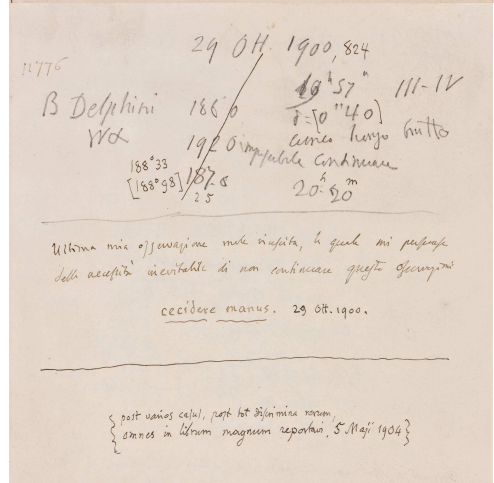 29 Ott. 1900, 824
11776
18ʰ 57ᵐ III-IV
β Delphini 186 0 δ=[0"40]
192 0 brutto
impossibile continuare
188°33
[188°98] 187.8 20ʰ 20ᵐ
25
Ultima mia osservazione male riuscita, la quale mi persuase
della necessità inevitabile di non continuare queste osservazioni
cecidere manus. 29 Ott. 1900.
post varios casus, post tot discrimina rerum,
omnes in librum magnum reportavi, 5 Maji 1904